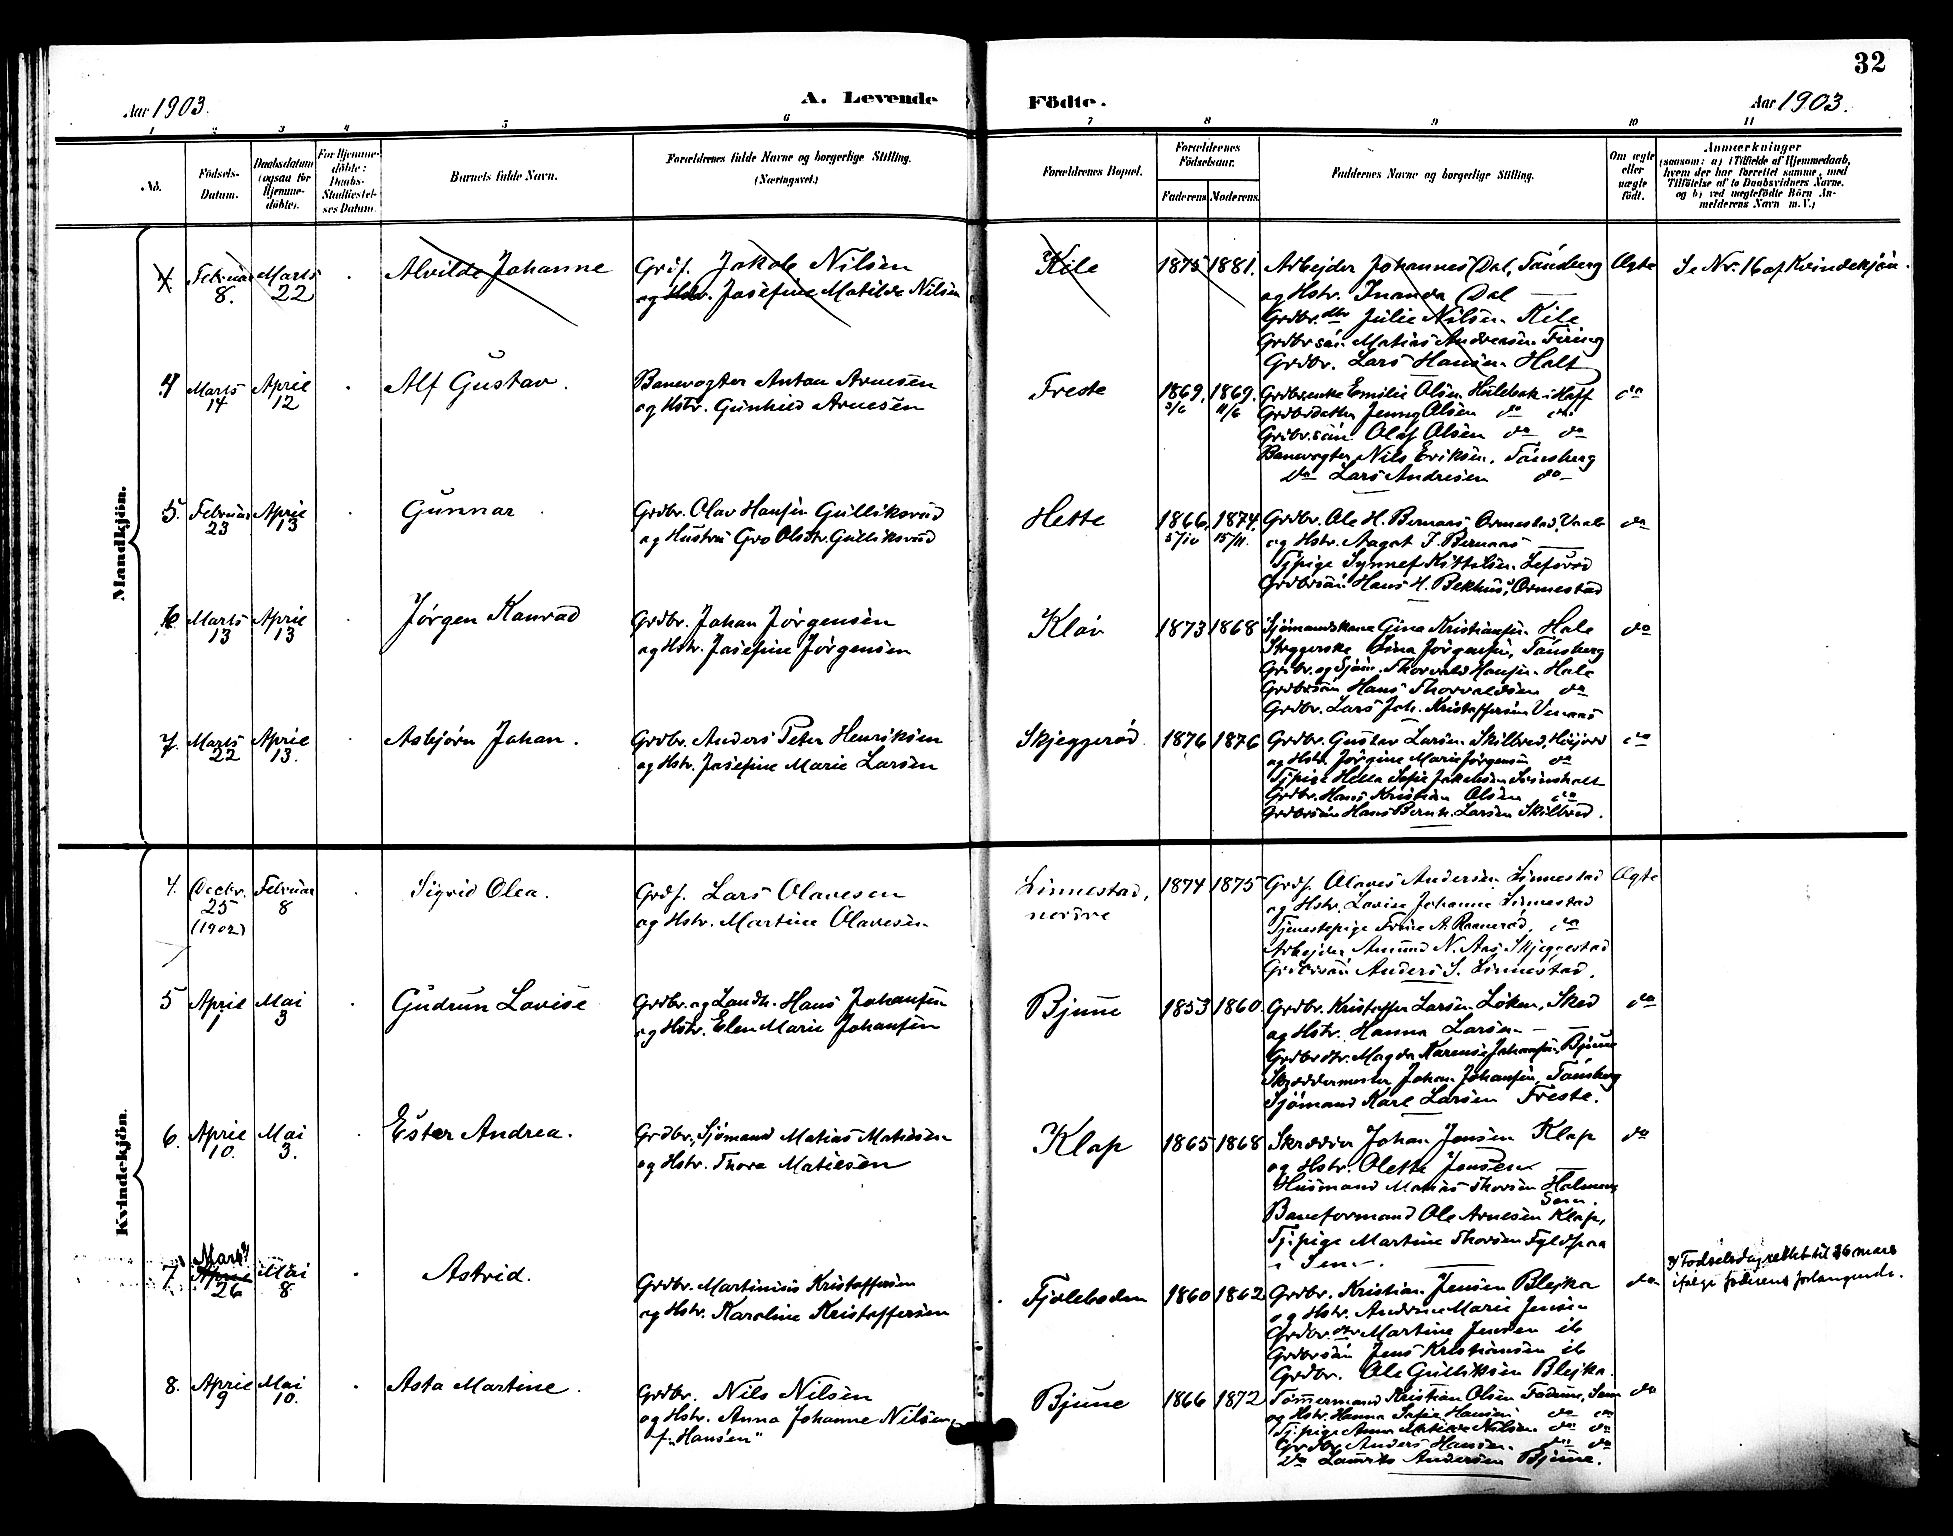 32
Aar 1903.
A. Levende Födte.
Aar 1903.
1 2 3 4 5 6 7 8 9 10 11
No.
Födsels-
Datum.
Daabsdatum
(ogsaa for
Hjemme-
döbte).
For Hjemme-
döbte:
Daabs-
Stadfæstel-
ses Datum.
Barnets fulde Navn.
Forældrenes fulde Navne og borgerlige Stilling.
(Næringsvei.)
Forældrenes Bopæl.
Forældrenes
Födselsaar.
Faderens. Moderens.
Faddernes Navne og borgerlige Stilling.
Om ægte
eller
uægte
födt.
Anmærkninger
(saasom: a) i Tilfælde af Hjemmedaab,
hvem der har forrettet samme, med
Tilföielse af to Daabsvidners Navne.
og b) ved uægtefödte Börn An-
melderens Navn m. V.)
Mandkjön.
4 Februar 8. Marts 22 Alvilde Johanne
Grdf. Jakob Nilsen
og Hstr. Josefine Matilde Nilsen
Kile 1875 1881.
Arbejder Johannes Dal, Tönsberg
og Hstr. Inanda Dal —
Grdbr. dtr Julie Nilsen Kile
Grdbrsön Matias Andersen Firing
Grdbr. Lars Hansen Holt
Ægte
Se Nr. 16 af Kvindekjön.
4 Marts 14 April 12 Alf Gustav.
Banevogter Anton Arnesen
og Hstr. Gunhild Arnesen
Freste 1869. 1869. 11/6
Grdbrenke Emilie Olsen Hulebak i Hoff
Grdbrdatter Jenny Olsen do do
Grdbr.sön Olaf Olsen do do
Banevogter Nils Eriksen, Tönsberg
do Lars Andresen do
do
5. Februar 23 April 13 Gunnar
Grdbr. Olav Hansen Gulliksrud
og Hustru Gro Olsdtr. Gulliksrud
Hette 1866. 5/10 1874. 15/11.
Grdbr. Ole H. Bernaas Ormestad,
og Hstr. Aagot J. Bernaas —
Tjpige Synnef Kittelsen Lefsrød
Grdbrsön Hans H. Bekhus, Ormestad
do
6 Marts 13 April 13 Jørgen Konrad
Grdbr. Johan Jørgensen
og Hstr. Josefine Jørgensen
Kløv 1873 1868
Sjømandskone Gina Kristiansen Hole
Strygerske Lina Jørgensen, Tönsberg
Grdbr. og Sjöm. Thorvald Hansen Hole
Grdbrsön Hans Thorvaldsen do
Grdbr. Lars Joh. Kristoffersen Vinaas
do
7. Marts 22 April 13. Asbjörn Johan.
Grdbr. Anders Peter Henriksen
og Hstr. Josefine Marie Larsen
Skjeggerød. 1876 1876
Grdbr. Gustav Larsen Skilbred, Höijord
og Hstr. Jörgine Marie Jörgensen do
Tjpige Hella Sofie Jakobsen Svinsholt
Grdbr. Hans Kristian Olsen do
Grdbrsön Hans Bernh. Larsen Skilbred.
do
Kvindekjön.
4. Decbr. 25 (1902) Februar 8 Sigrid Olea.
Grdf. Lars Olavesen
og Hstr. Martine Olavesen
Linnestad, nordre 1874 1875
Grdf. Olaves Andersen Linnestad
og Hstr. Lovise Johanne Linnestad
Tjenestepige Trine A. Ramerød, do
Arbejder Amund N. Aas Skjeggestad
Grdbrsön Anders S. Linnestad.
Ægte
5 April 1 Mai 3 Gudrun Lovise
Grdbr. og Landh. Hans Johansen
og Hstr. Elen Marie Johansen
Bjune 1853 1860.
Grdbr. Kristoffer Larsen Løken, Sked
og Hstr. Hanna Larsen — —
Grdbrdtr. Magda Karensie Johansen, Bjune
Skræddermester Johan Johansen, Tönsberg
Sjömand Karl Larsen Freste.
do
6. April 10. Mai 3. Ester Andrea.
Grdbr., Sjömand Matias Matiesen
og Hstr. Thora Matiesen
Klop 1865 1868
Skrædder Johan Jensen Klop
og Hstr. Olette Jensen —
Husmand Matias Thorsen
Sem.
Baneformand Ole Arnesen Klop,
Tj.pige Martine Thorsen Fyldpaa
i Sem.
do
7. Marts April 26 Mai 8 Astrid.
Grdbr. Martinius Kristoffersen
og Hstr. Karoline Kristoffersen
Fjoleboden 1860 1862
Grdbr. Kristian Jensen Blejka
og Hstr. Andrine Marie Jensen
Grdbr. dtr Martine Jensen ib
Grdbrsön Jens Kristiansen ib
Grdbr. Ole Gulliksen Blejka.
do
Fødselsdag rettet til 26 mars
ifølge faderens forlangende.
8. April 9 Mai 10. Asta Martine.
Grdbr. Nils Nilsen
og Hstr. Anna Johanne Nilsen,
f. "Hansen"
Bjune 1866 1872
Tömmermand Kristian Olsen Fadum, Sem
og Hstr. Hanna Sofie Hansen do do
Tj.pige Anna Matilde Nilsen do do
Grdbr. Anders Hansen do do
do Laurits Andersen Bjune.
do